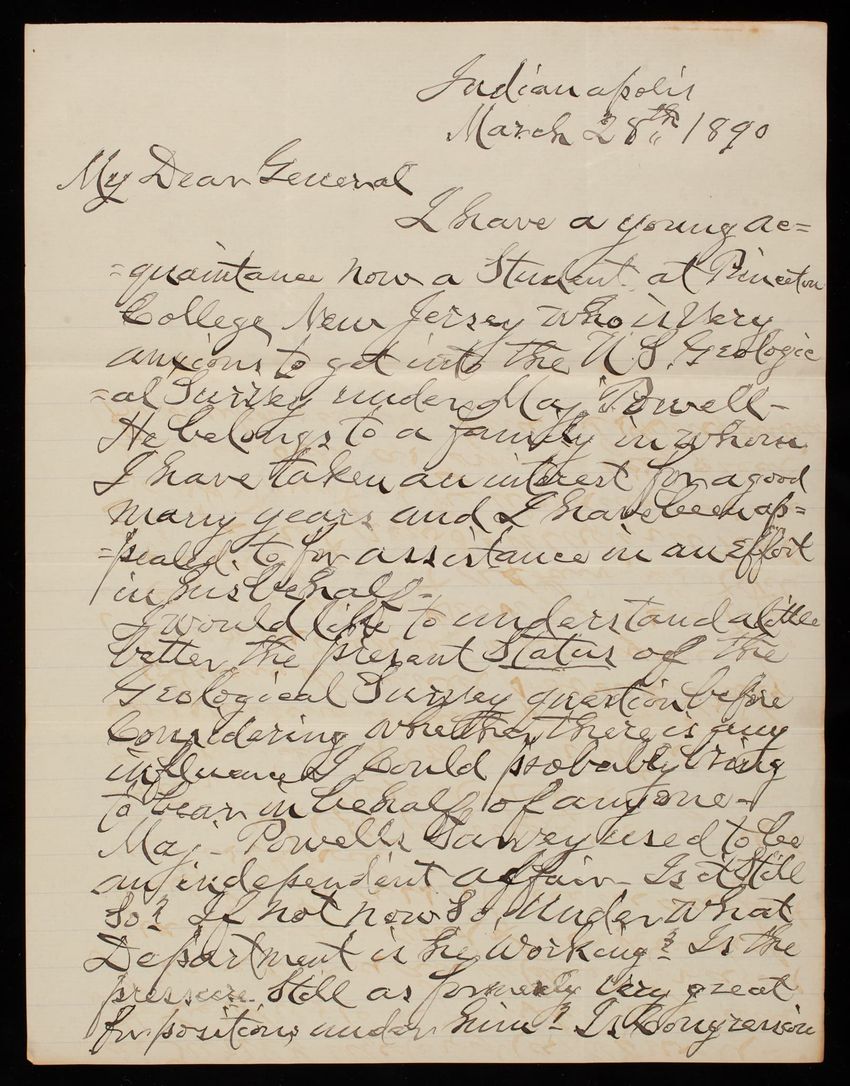 Indianapolis
March 28th 1890
My Dear General
I have a young ac=
=quaintance now a Student at Princeton
College New Jersey who is very
anxious to get into the U.S. Geologic
=al Survey under Maj Powell-
He belongs to a family in whom
I have taken an interest for a good
many years and I have been ap=
=pealed to for assistance in an effort
in his behalf-
I would like to understand a little
better the present Status of the
Geological Survey question before
Considering whether there is any
influence I could probably bring
to bear in behalf of anyone-
Maj- Powells Survey used to be
an independent affair- Is it Still
So? If not now So, Under what
Department is he Working? Is the
pressure Still as formerly very great
for positions under him? Is Congression